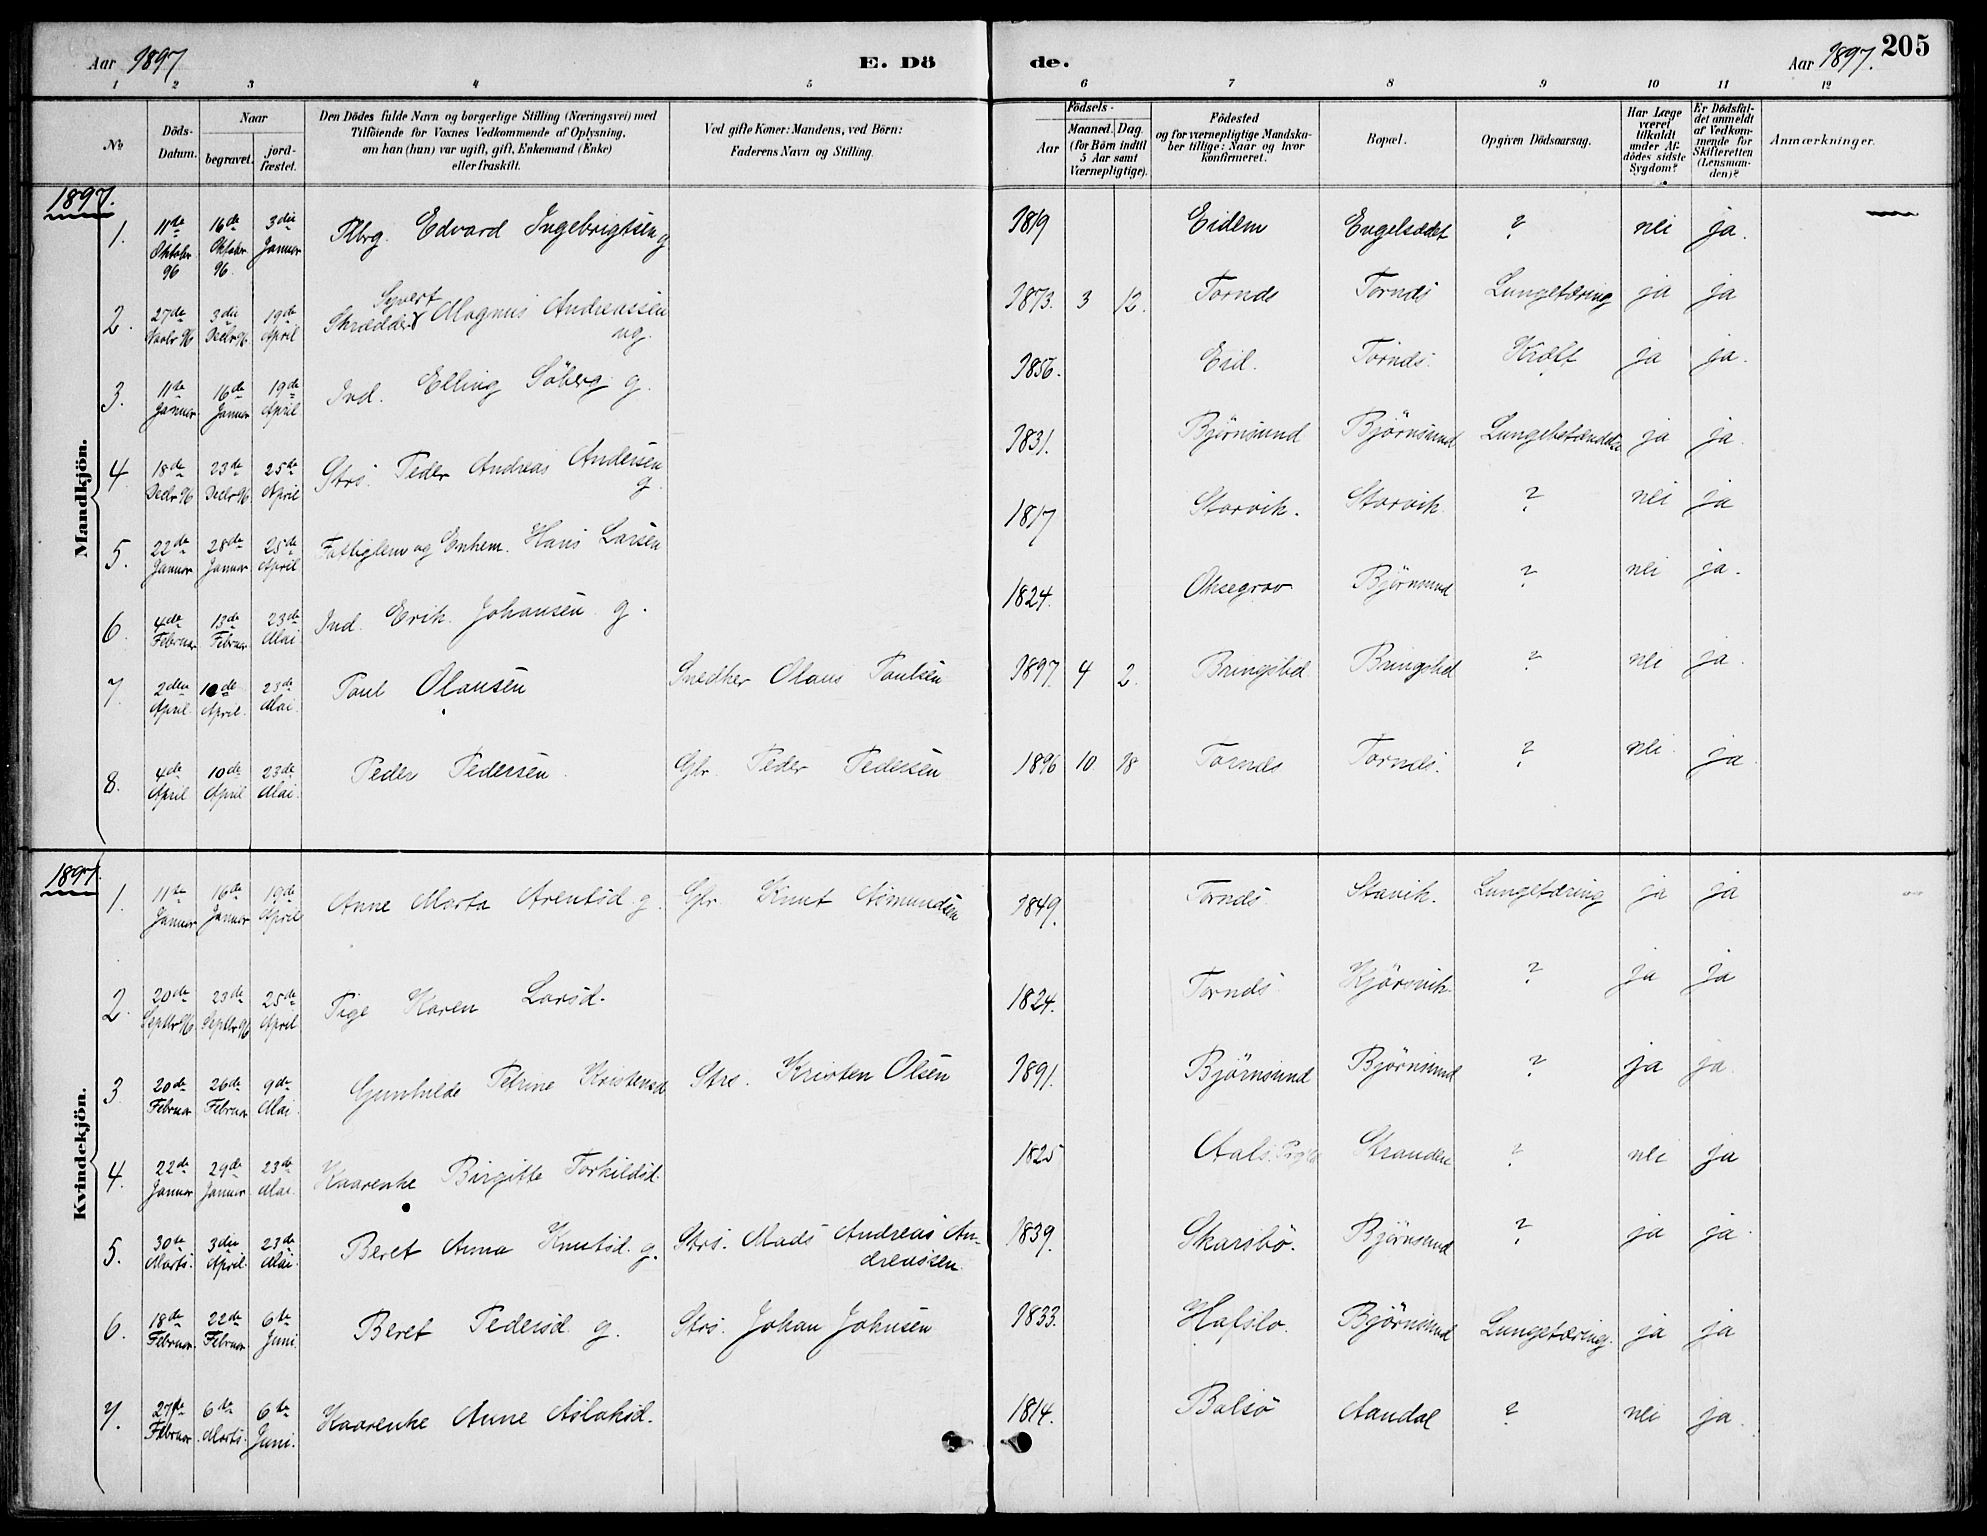 Aar 1897 E. Dö de. Aar 1897. 205
1 2 3 4 5 6 7 8 9 10 11 12
No
Döds-Datum.
Naar
begravet.
jord-fæstet.
Den Dödes fulde Navn og borgerlige Stilling (Næringsvei) med
Tilföiende for Voxnes Vedkommende af Oplysning,
om han (hun) var ugift, gift, Enkemand (Enke)
eller fraskilt.
Ved gifte Koner: Mandens, ved Börn:
Faderens Navn og Stilling.
Födsels-
Aar
Maaned. Dag.
(for Börn indtil
5 Aar samt
Værnepligtige).
Födested
og for værnepligtige Mandska-
ber tillige: Naar og hvor
konfirmeret.
Bopæl.
Opgiven Dödsaarsag.
Har Læge
været
tilkaldt
under Af-
dödes sidste
Sygdom?
Er Dödsfal-
det anmeldt
af Vedkom-
mende for
Skifteretten
(Lensman-
den)?
Anmærkninger.
1897.
Mandkjön.
1. 11te Oktober 96 16de Oktober 96. 3die Januar Edvard Ingebrigtsen g 1819 Eidem ? nei ja.
2. 27de Novbr 96 3die Decbr 96 19de April Skrædder Syvert Magnus Andreassen ug. 1873. 3 12. Tornes Tornes Lungetæring ja ja
3. 11te Januar 16de Januar 19de April Ind. Elling Söberg g. 1856. Eid. Tornes. Kræft ja ja.
4. 18de Decbr 96 23de Decbr 96 25de April Strs. Peder Andreas Andersen g. 1831. Björnsund Björnsund Lungebetændelse ja ja.
5. 22de Januar 28de Januar 25de April Fattiglem og Enkem. Hans Larsen 1817 Storvik. Storvik. ? nei ja
6. 4de Februar 13de Februar 23de Mai Ind. Erik Johansen g. 1824. Oksegrav Björnsund ? nei ja.
7. 2den April 10de April. 23de Mai. Paul Olausen Snedker Olaus Paulsen 1897. 4 2. Bringslid. Bringslid ? nei ja.
8. 4de April 10de April 23de Mai. Peder Pedersen. Gbr. Peder Pedersen 1896 10 18 Tornes Tornes. ? nei. ja
1897.
Kvindekjön.
1. 11te Januar 16de Januar 19de April Anne Marta Arentsd. g. Gbr. Knut Asmundsen 1849. Tornes. Stavik. Lungetæring ja ja
2. 20de Septbr 96 23de Septbr 96 25de April Pige Karen Larsd. 1824. Tornes. Kjörsvik. ? ja ja
3 20de Februar 26de Februar 9de Mai. Gunhilde Petrine Kristensd Strs. Kristen Olsen 1891. Björnsund Björnsund ? ja ja.
4. 22de Januar 29de Januar 23de Mai. Kaarenke Birgitte Torkildsd. 1825 Aals Stranden ? nei ja
5. 30te Marts. 3die April. 23de Mai. Beret Anna Knutsd. g. Strs. Mads Andreas Andreassen 1839. Skarsbö. Björnsund ? ja ja.
6. 18de Februar. 22de Februar. 6te Juni. Beret Pedersd. g. Strs. Johan Johnsen 1833. Hafslo. Björnsund Lungetæring. ja ja
7. 27de Februar 6te Marts. 6te Juni. Kaarenke Anne Aslaksd. 1814. Bolsö Aandal ? nei ja.